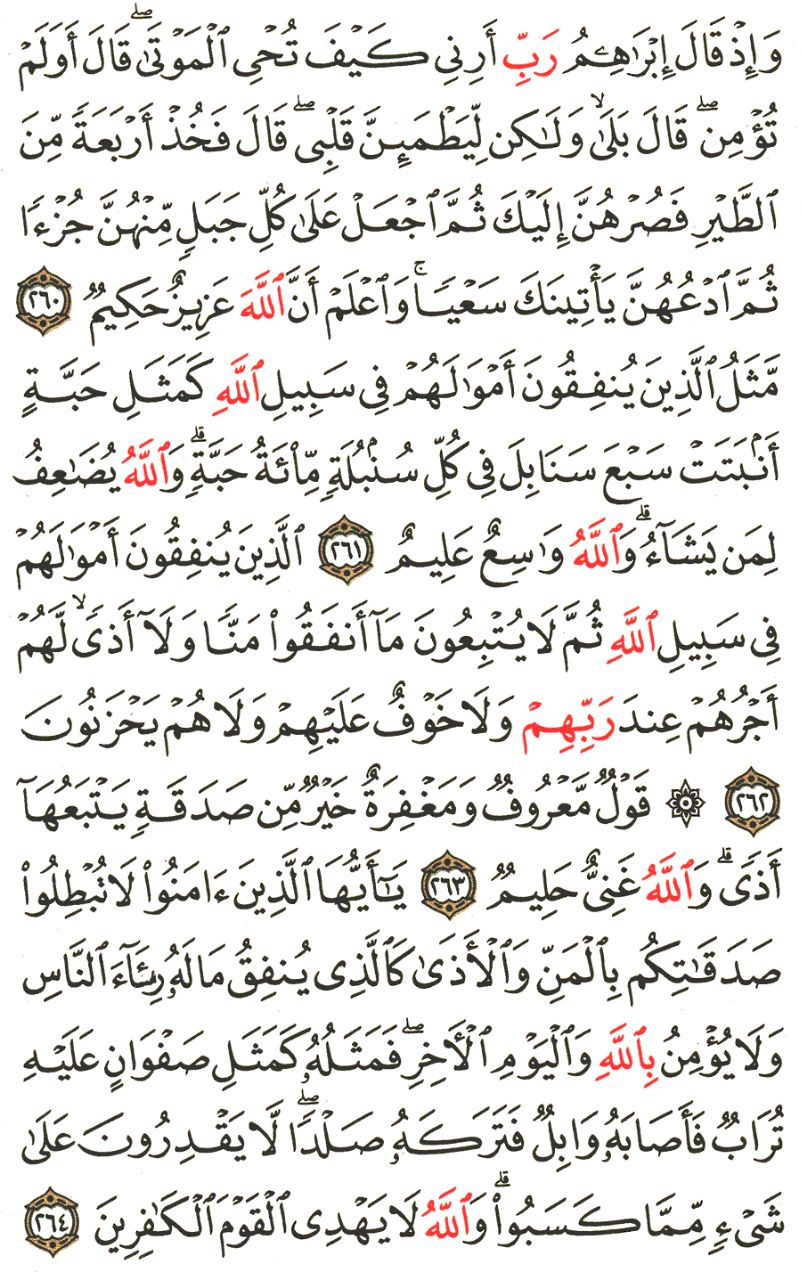 وَإِذْ قَالَ إِبْرَٰهِـۧمُ رَبِّ أَرِنِى كَيْفَ تُحْىِ ٱلْمَوْتَىٰ ۖ قَالَ أَوَلَمْ
تُؤْمِن ۖ قَالَ بَلَىٰ ۙ وَلَـٰكِن لِّيَطْمَئِنَّ قَلْبِى ۖ قَالَ فَخُذْ أَرْبَعَةً مِّنَ
ٱلطَّيْرِ فَصُرْهُنَّ إِلَيْكَ ثُمَّ ٱجْعَلْ عَلَىٰ كُلِّ جَبَلٍ مِّنْهُنَّ جُزْءًا
ثُمَّ ٱدْعُهُنَّ يَأْتِينَكَ سَعْيًا ۚ وَٱعْلَمْ أَنَّ ٱللَّهَ عَزِيزٌ حَكِيمٌ ٢٦٠
مَّثَلُ ٱلَّذِينَ يُنفِقُونَ أَمْوَٰلَهُمْ فِى سَبِيلِ ٱللَّهِ كَمَثَلِ حَبَّةٍ
أَنۢبَتَتْ سَبْعَ سَنَابِلَ فِى كُلِّ سُنۢبُلَةٍ مِّا۟ئَةُ حَبَّةٍ ۗ وَٱللَّهُ يُضَـٰعِفُ
لِمَن يَشَآءُ ۗ وَٱللَّهُ وَٰسِعٌ عَلِيمٌ ٢٦١ ٱلَّذِينَ يُنفِقُونَ أَمْوَٰلَهُمْ
فِى سَبِيلِ ٱللَّهِ ثُمَّ لَا يُتْبِعُونَ مَآ أَنفَقُوا۟ مَنًّا وَلَآ أَذًى ۙ لَّهُمْ
أَجْرُهُمْ عِندَ رَبِّهِمْ وَلَا خَوْفٌ عَلَيْهِمْ وَلَا هُمْ يَحْزَنُونَ
٢٦٢ ۞ قَوْلٌ مَّعْرُوفٌ وَمَغْفِرَةٌ خَيْرٌ مِّن صَدَقَةٍ يَتْبَعُهَآ
أَذًى ۗ وَٱللَّهُ غَنِىٌّ حَلِيمٌ ٢٦٣ يَـٰٓأَيُّهَا ٱلَّذِينَ ءَامَنُوا۟ لَا تُبْطِلُوا۟
صَدَقَـٰتِكُم بِٱلْمَنِّ وَٱلْأَذَىٰ كَٱلَّذِى يُنفِقُ مَالَهُۥ رِئَآءَ ٱلنَّاسِ
وَلَا يُؤْمِنُ بِٱللَّهِ وَٱلْيَوْمِ ٱلْـَٔاخِرِ ۖ فَمَثَلُهُۥ كَمَثَلِ صَفْوَانٍ عَلَيْهِ
تُرَابٌ فَأَصَابَهُۥ وَابِلٌ فَتَرَكَهُۥ صَلْدًا ۖ لَّا يَقْدِرُونَ عَلَىٰ
شَىْءٍ مِّمَّا كَسَبُوا۟ ۗ وَٱللَّهُ لَا يَهْدِى ٱلْقَوْمَ ٱلْكَـٰفِرِينَ ٢٦٤